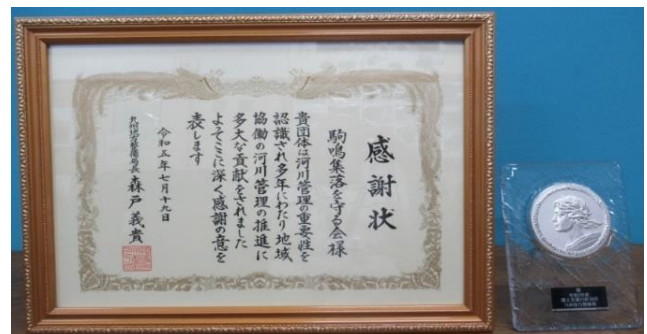 感謝状
駒鳴集落を守る会様
貴団体は河川管理の重要性を
認識され多年にわたり地域
協働の河川管理の推進に
多大な貢献をされました
よってここに深く感謝の意を
表します
令和五年七月十九日
九州地方整備局長 森戸義貴